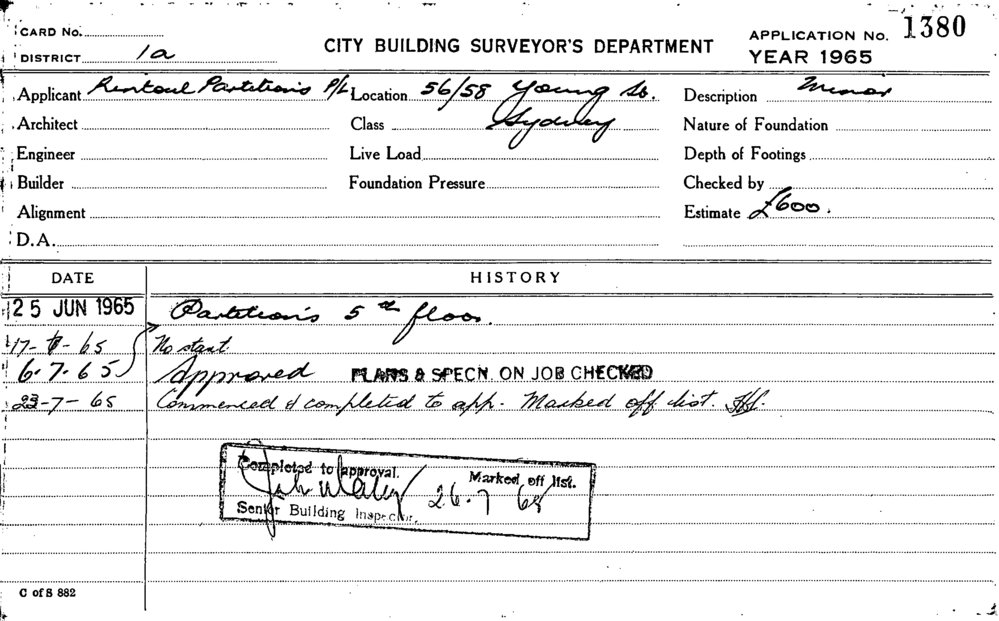 CARD No.
DISTRICT 1a
CITY BUILDING SURVEYOR'S DEPARTMENT
APPLICATION No. 1380
YEAR 1965
Applicant Rintoul Partitions P/L Location 56/58 Young St. Description Minor
Architect Class Sydney Nature of Foundation
Engineer Live Load Depth of Footings
Builder Foundation Pressure Checked by
Alignment Estimate £600.
D.A.
DATE HISTORY
25 JUN 1965 Partitions 5th floor.
17-7-65 No start
6.7.65 Approved PLANS & SPECN. ON JOB CHECKED
23-7-65 Commenced & completed to app. Marked off list.
Completed to approval. Marked off list.
26.7 65
Senior Building Inspector.
C of S 882